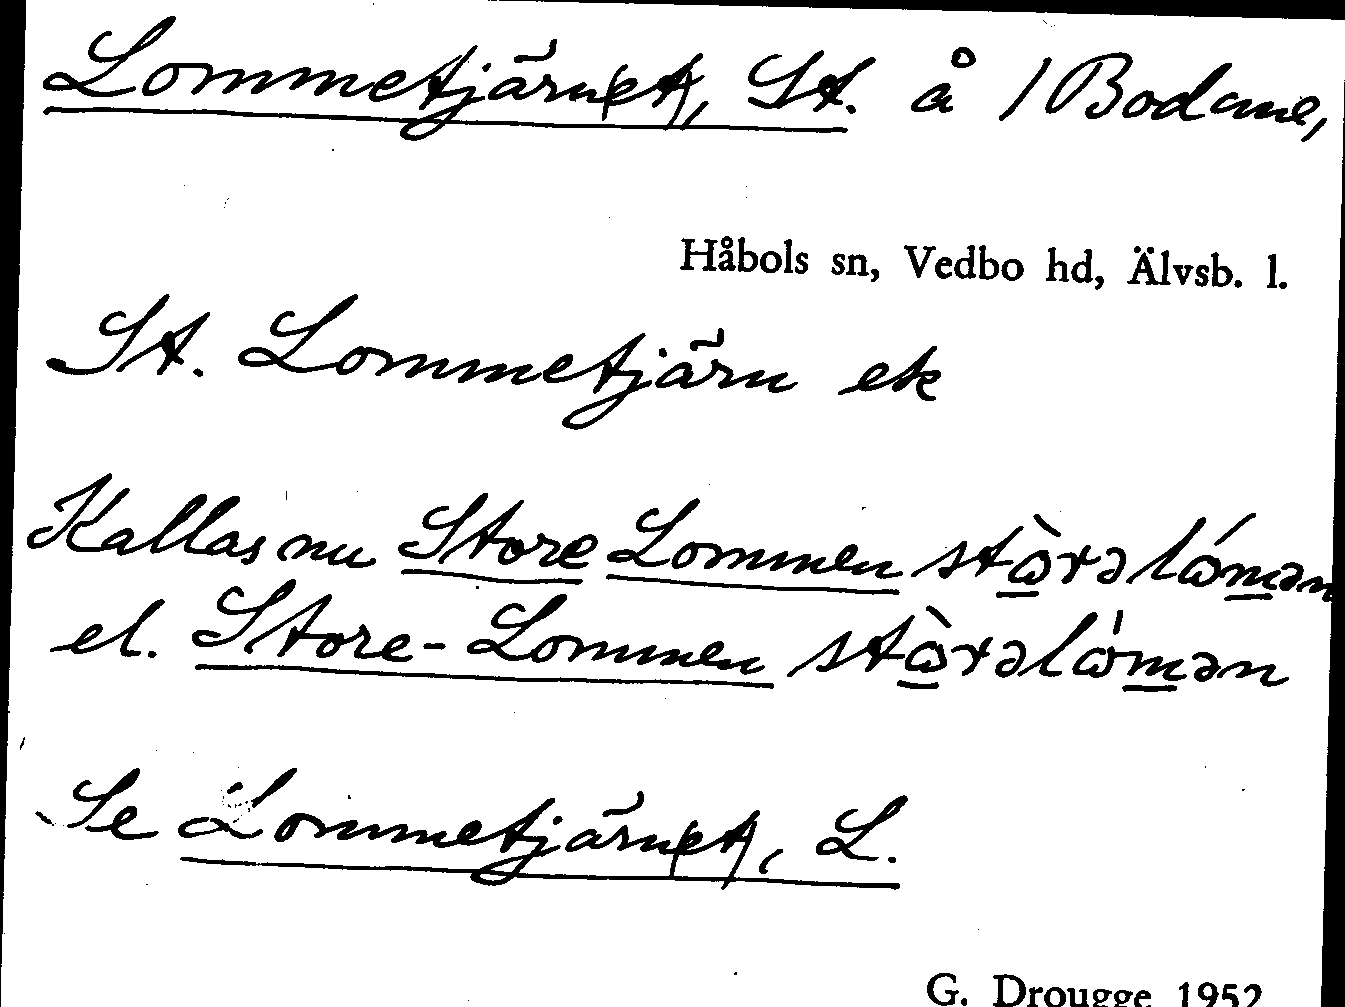 Lommetjärn(et), St. å 1 Bodane,
Håbols sn, Vedbo hd, Älvsb. l.
St. Lommetjärn ek
Kallas nu Store Lommen stɷ̀rə lɷ́mən
el. Store-Lommen stɷ̀rəlɷ̍mən
Se Lommetjärn(et), L.
G. Drougge 1952